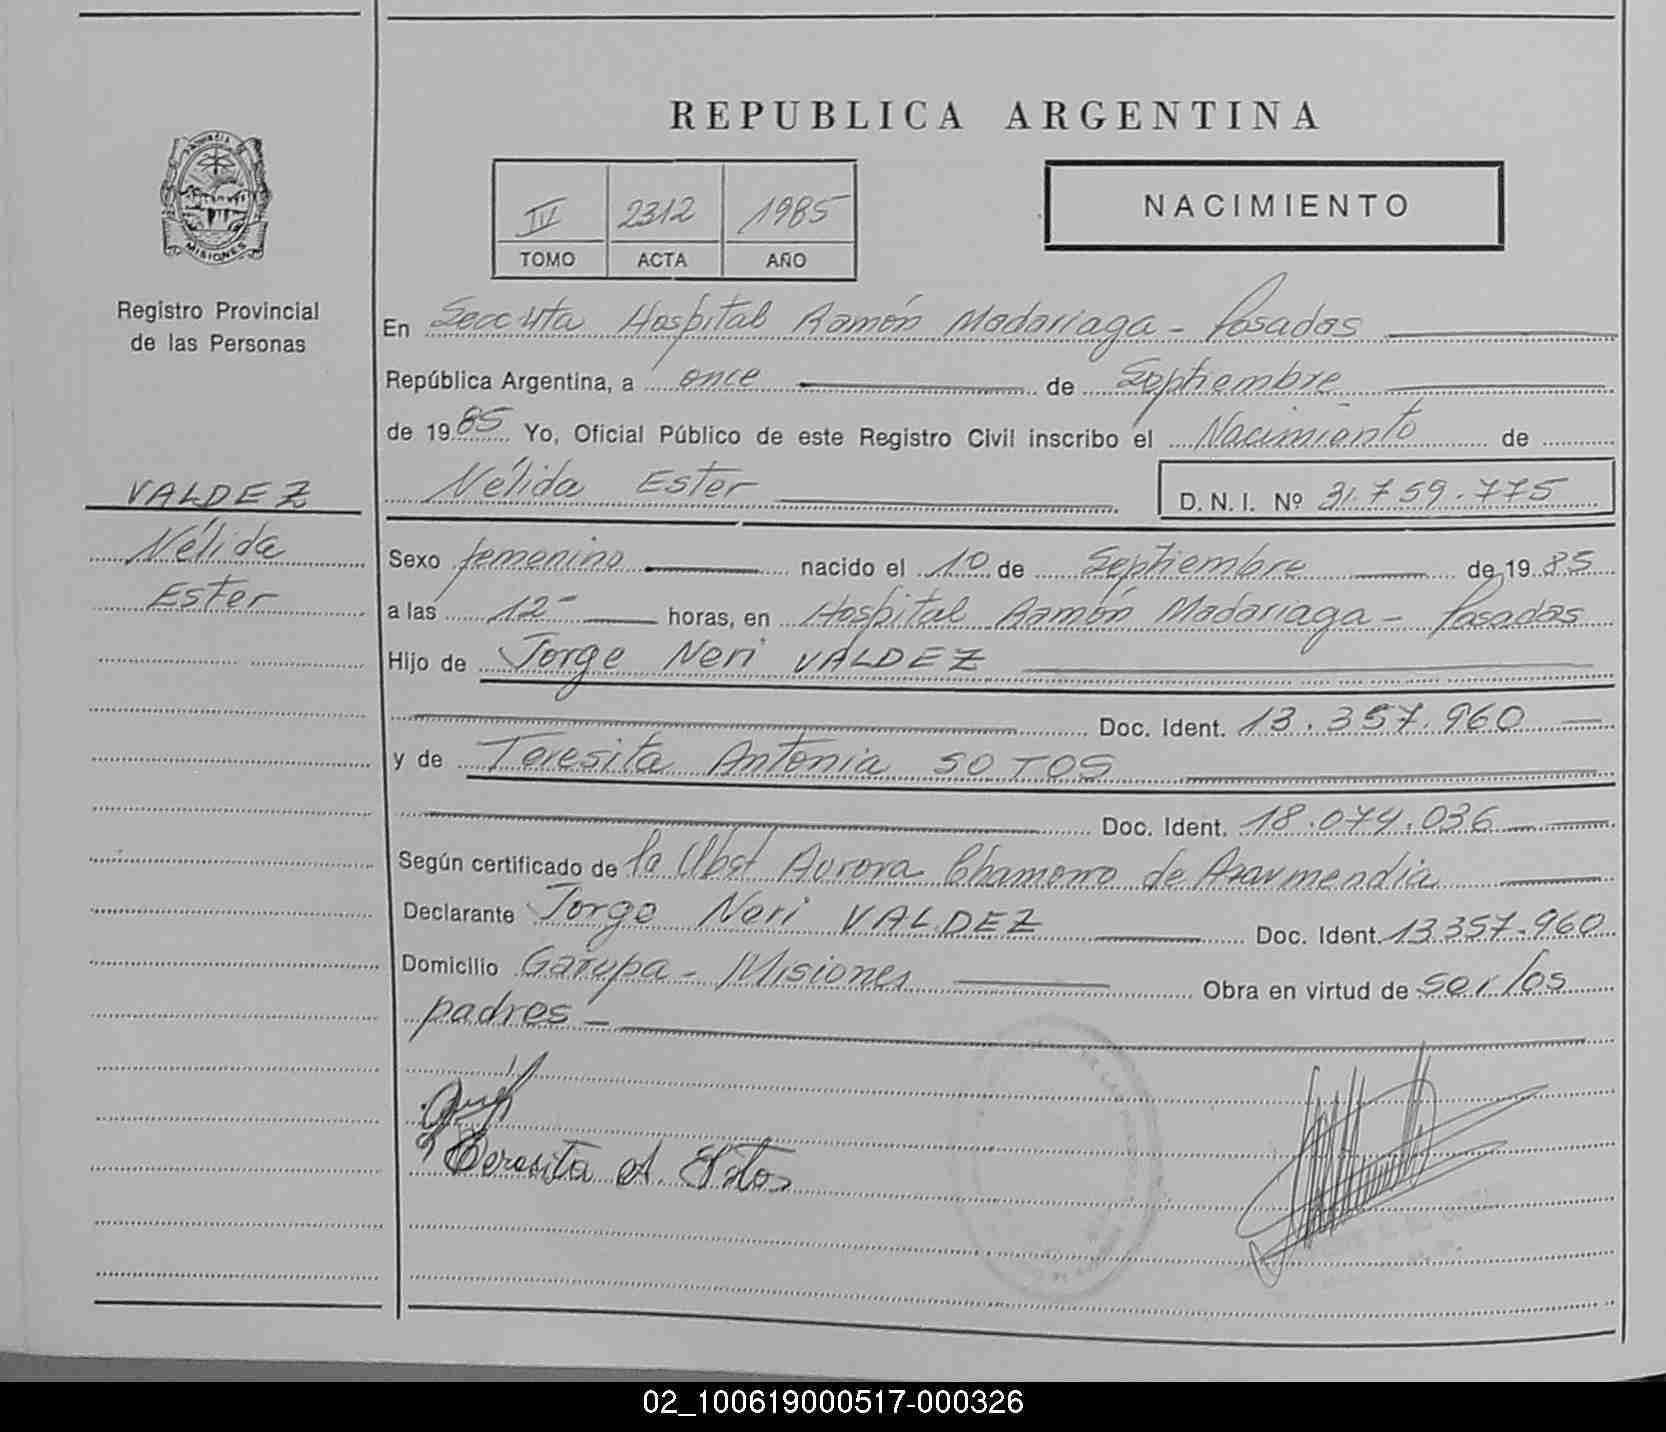 REPUBLICA ARGENTINA
PROVINCIA DE
MISIONES
IV 2312 1985
TOMO ACTA AÑO
NACIMIENTO
Registro Provincial
de las Personas
En Secc 4ta Hospital Ramón Madariaga - Posadas
República Argentina, a once de Septiembre
de 1985 Yo, Oficial Público de este Registro Civil inscribo el Nacimiento de
Nélida Ester D.N.I. Nº 31.759.775
VALDEZ
Nélida
Ester
Sexo femenino nacido el 10 de Septiembre de 1985
a las 12- horas, en Hospital Ramón Madariaga - Posadas
Hijo de Jorge Neri VALDEZ
Doc. Ident. 13.357.960
y de Teresita Antonia SOTOS
Doc. Ident. 18.074.036
Según certificado de la Obst Aurora Chamorro de Azarmendia
Declarante Jorge Neri VALDEZ Doc. Ident. 13.357.960
Domicilio Garupa - Misiones Obra en virtud de ser los
padres -
Teresita A. Sotos
02_100619000517-000326